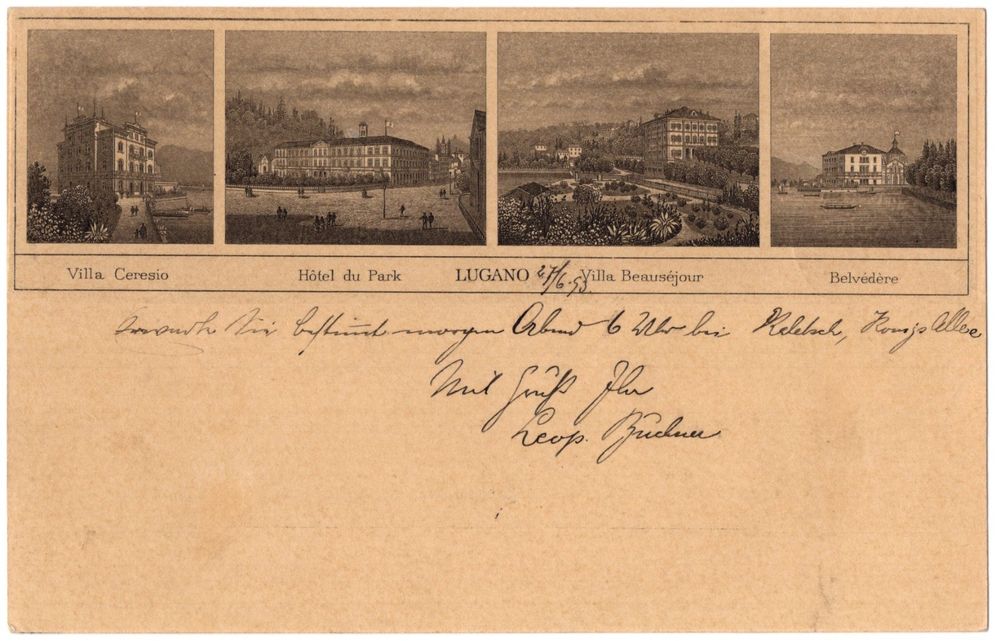 Villa Ceresio
Hôtel du Park
LUGANO 27/6.93.
Villa Beauséjour
Belvédère
Sie bestimmt morgen Abend 6 Uhr bei Königs Allee
Mit Gruß Ihr
Leop. Büchner